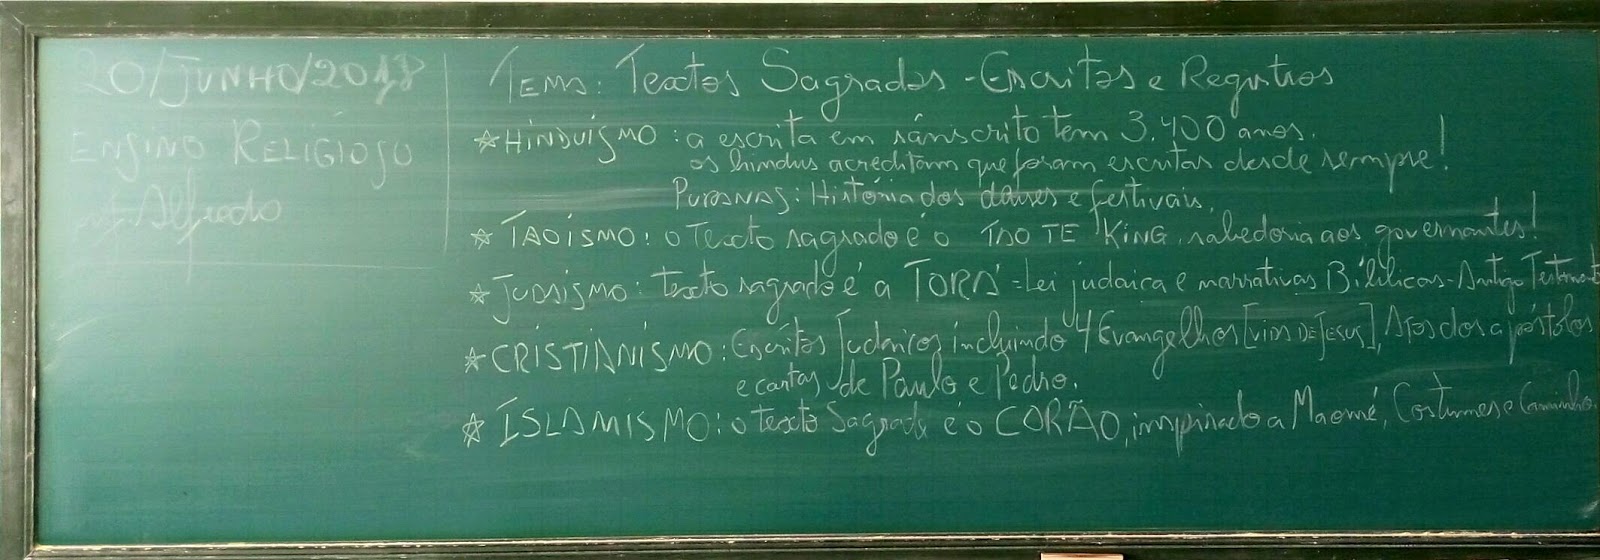 20/JUNHO/2018
ENSINO RELIGIOSO
Alfredo
TEMA: Textos Sagrados - Escritos e Registros
* HINDUÍSMO: a escrita em sânscrito tem 3.400 anos.
os hindus acreditam que foram escritas desde sempre!
PURANAS: História dos deuses e festivais.
* TAOÍSMO: o Texto sagrado é o TAO TE KING, sabedoria aos governantes!
* JUDAISMO: texto sagrado é a TORÁ - Lei judaica e narrativas Bíblicas - Antigo Testamento
* CRISTIANISMO: Escritos Judaicos incluindo 4 Evangelhos [VIDA DE JESUS], Atos dos apóstolos
e cartas de Paulo e Pedro.
* ISLAMISMO: o texto Sagrado é o CORÃO, inspirado a Maomé, Costumes e Caminho.